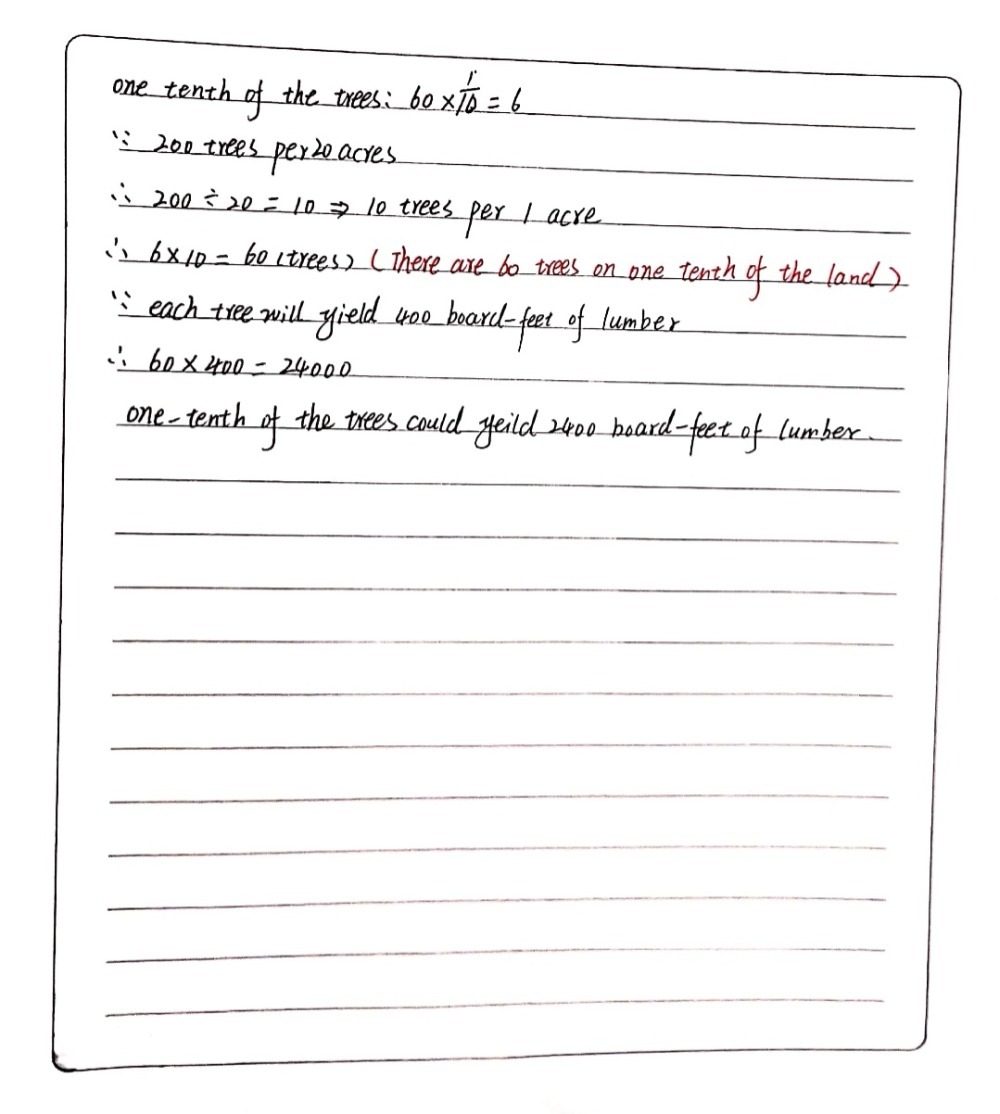 one tenth of the trees: 60 × 1/10 = 6
∵ 200 trees per 20 acres
∴ 200 ÷ 20 = 10 ⇒ 10 trees per 1 acre
∴ 6×10 = 60 (trees) (There are 60 trees on one tenth of the land)
∵ each tree will yield 400 board-feet of lumber
∴ 60 × 400 = 24000
one-tenth of the trees could yeild 2400 board-feet of lumber.